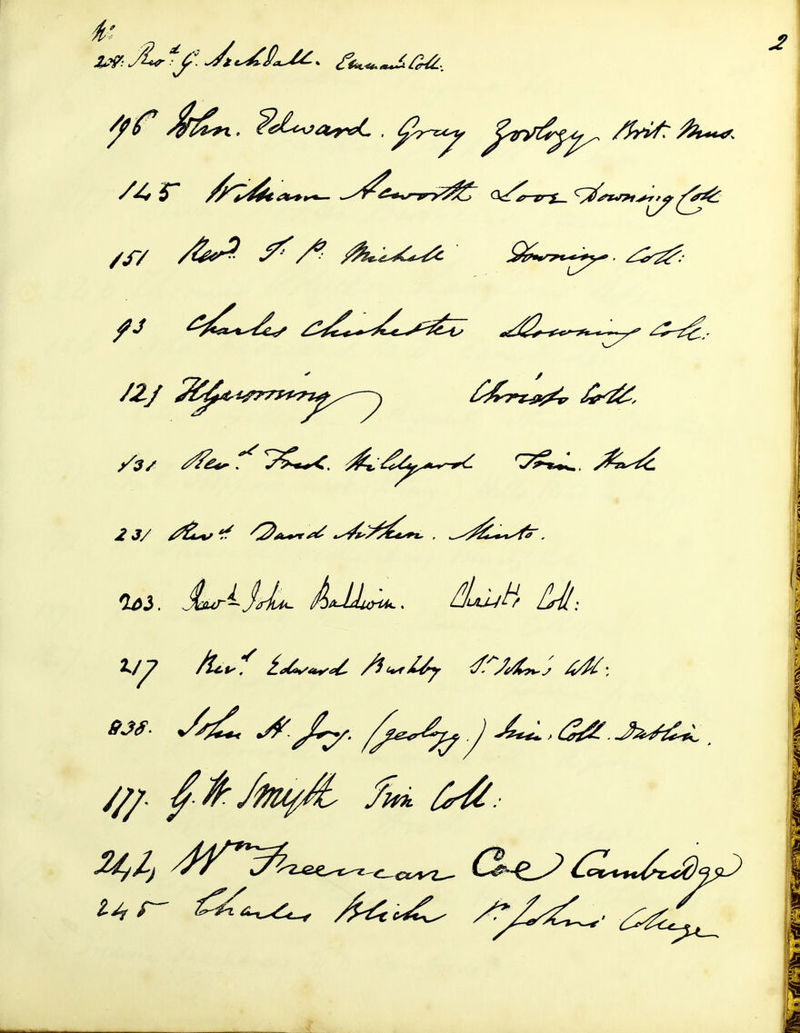 No.
2
208. Revd. G. Archdall. Emmanl Coll.
196 John. Edward. Gray Zoology Brit. Mus.
145 William Acworth Downing Coll
151 Revd J. P. Michell Downing. Coll:
93 Charles Chichester Downing Coll:
121 Christs Coll.
131 Revd. Fred. Hildyard Trin. Hall
231 Revd. David Aitken. Minto.
203. Revd John Baldwin. Christs Coll:
217 Revd. Edward Bushby St John's Coll:
838. John H. Joy. (geology.) Trin. Coll. Dublin.
177. G. W. Smyth Trin Coll:
242, Wm Freeman Coe Cambridge
245 Charles Blick St Johns College